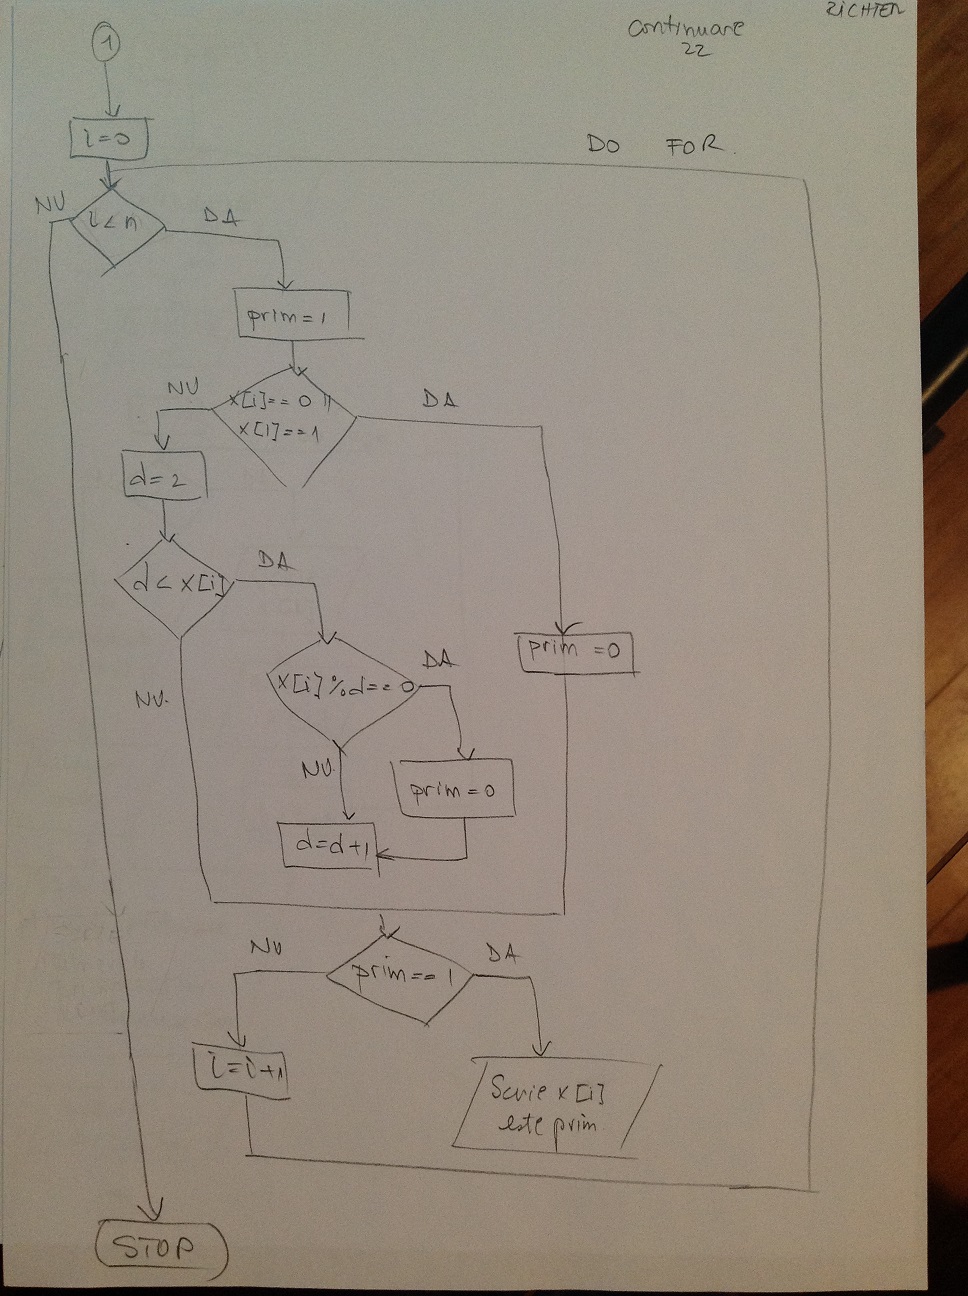 RICHTER
continuare
22
1
i=0
DO FOR.
NU
i<n
DA
prim=1
NU
x[i]==0 ||
x[i]==1
DA
d=2
d<x[i]
DA
prim=0
x[i]%d==0
DA
NU.
NU.
prim=0
d=d+1
NU
prim==1
DA
i=i+1
Scrie x[i]
este prim
STOP